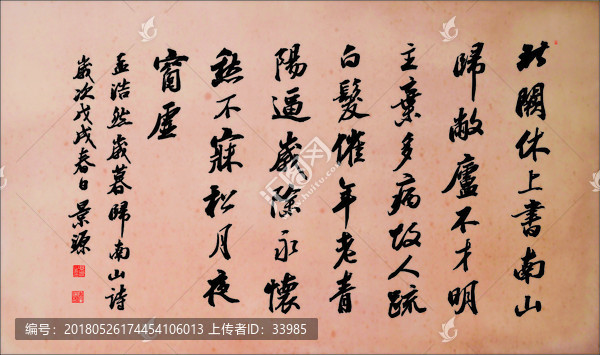 北闕休上書南山
歸敝廬不才明
主棄多病故人疏
白髮催年老青
陽逼歲除永懷
愁不寐松月夜
窗虛
孟浩然歲暮歸南山詩
歲次戊戌春日景源
编号：20180526174454106013 上传者ID：33985